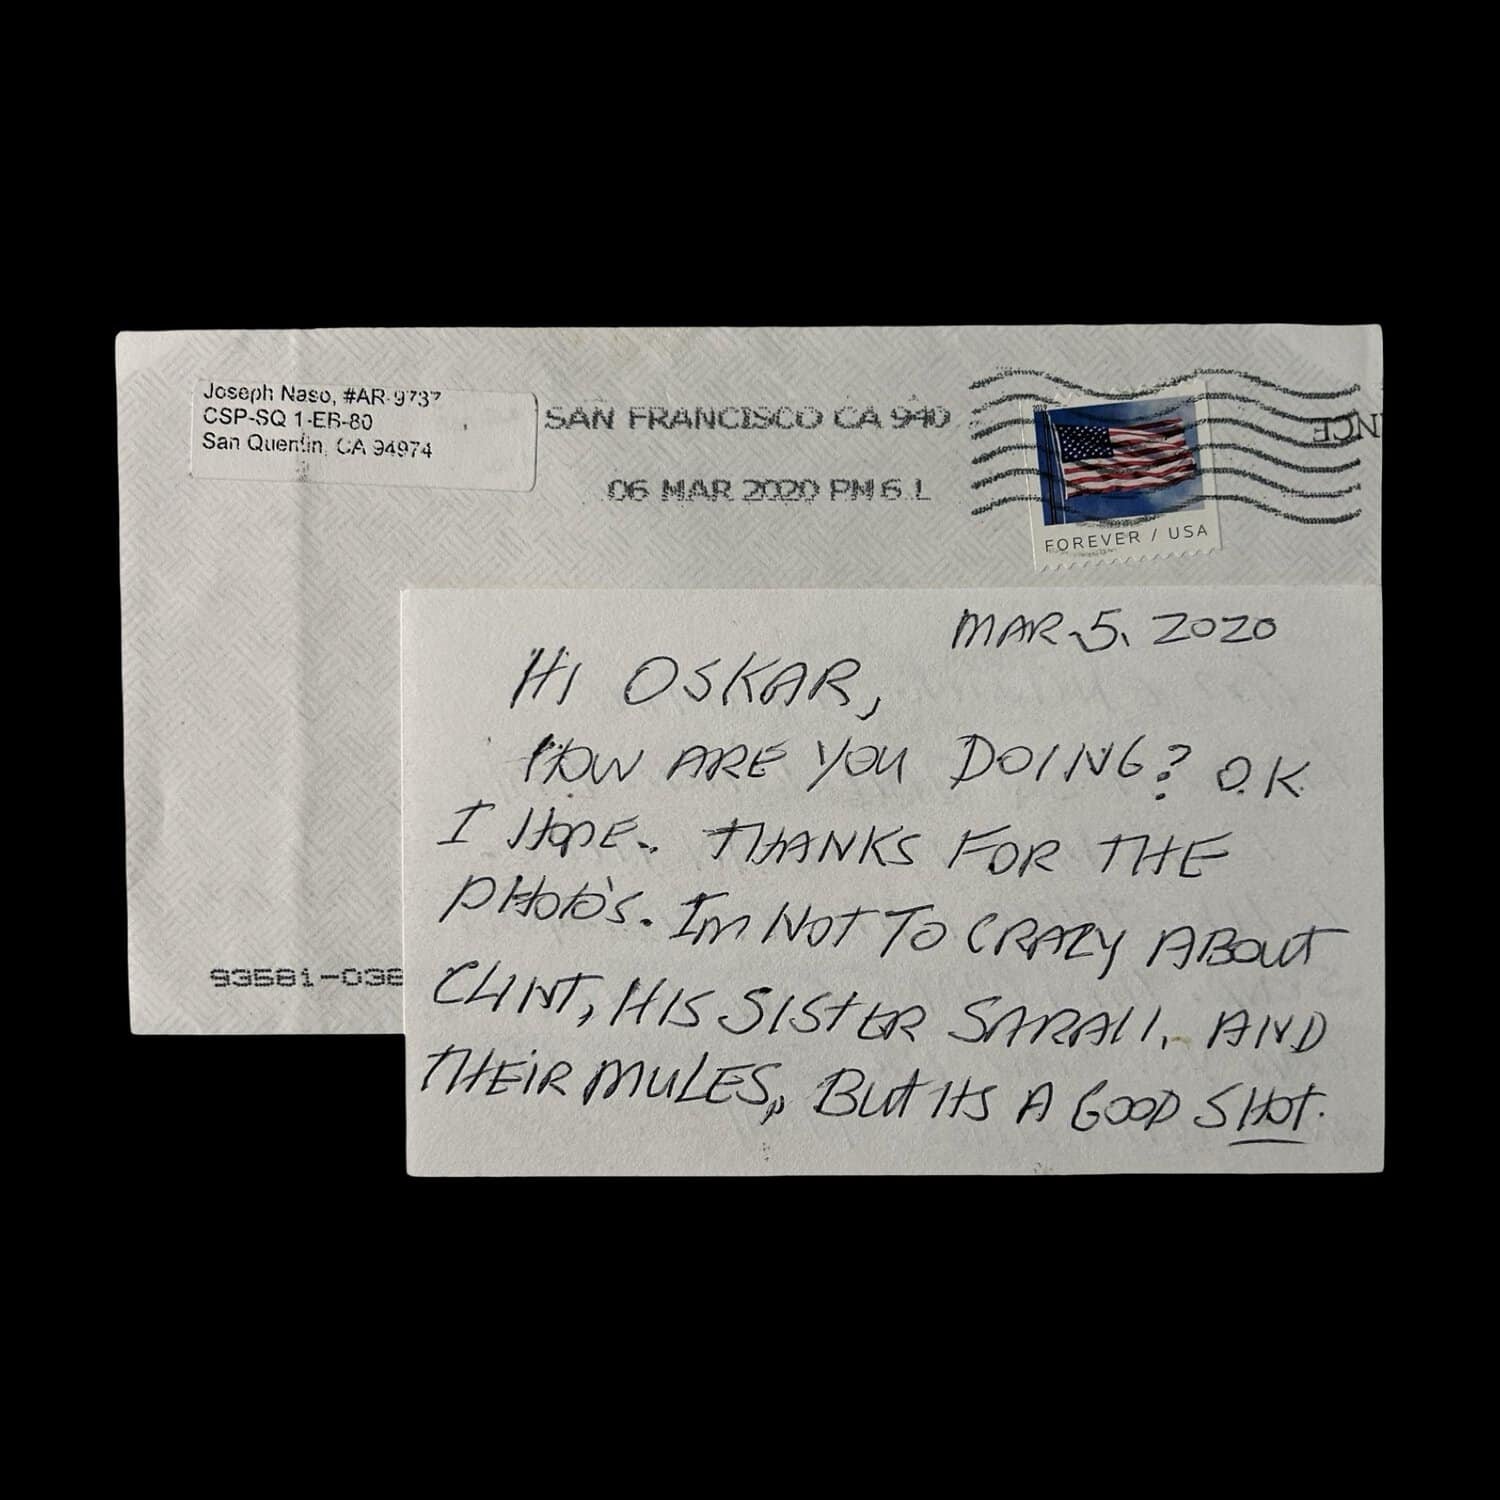 Joseph Naso, #AR-9737
CSP-SQ 1-EB-80
San Quentin, CA 94974
SAN FRANCISCO CA 940
06 MAR 2020 PM 6 L
FOREVER / USA
93581-038
MAR. 5. 2020
HI OSKAR,
HOW ARE YOU DOING? O.K.
I HOPE. THANKS FOR THE
PHOTO'S. I'm NOT TO CRAZY ABOUT
CLINT, HIS SISTER SARAH, AND
THEIR MULES, BUT ITS A GOOD SHOT.